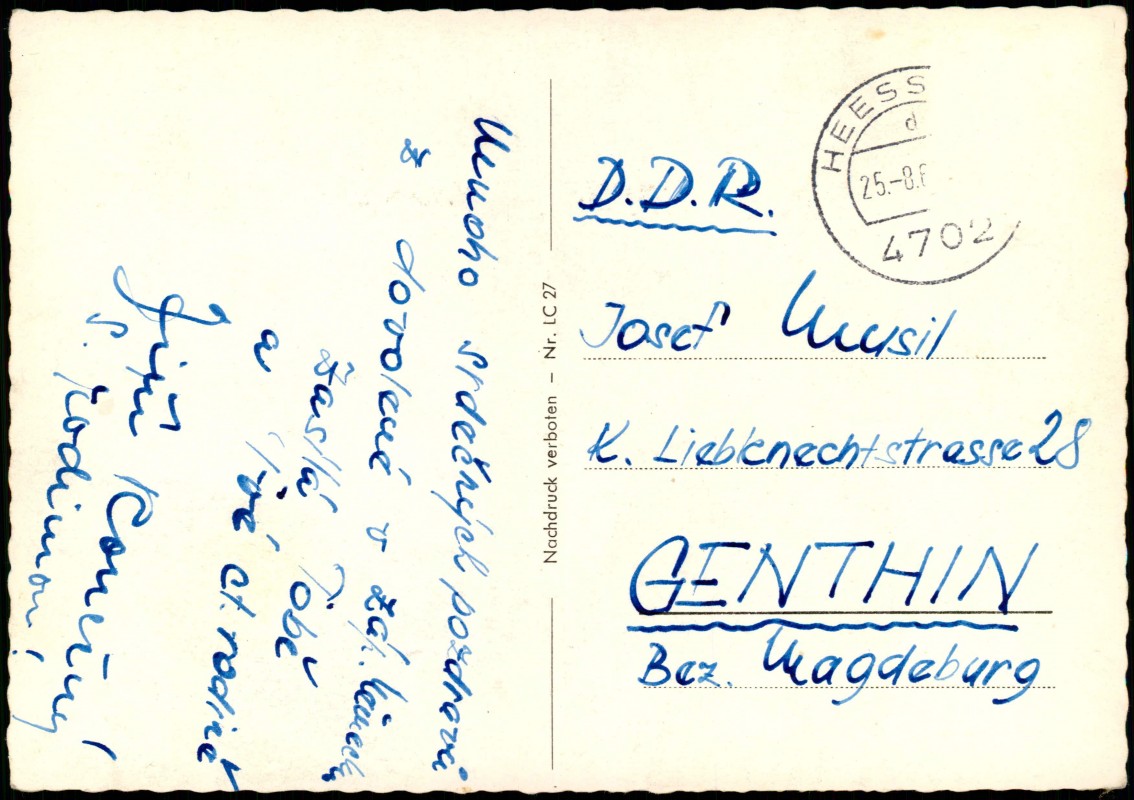 Mnoho srdečných pozdravů
z dovolené v záp. Němec.
zasílá Tobě
a Tvé ct. rodině
Jiří
s rodinou!
Nachdruck verboten – Nr. LC 27
HEESS
d
25.-8.6
4702
D.D.R.
Josef Musil
K. Liebknechtstrasse 28
GENTHIN
Bez. Magdeburg